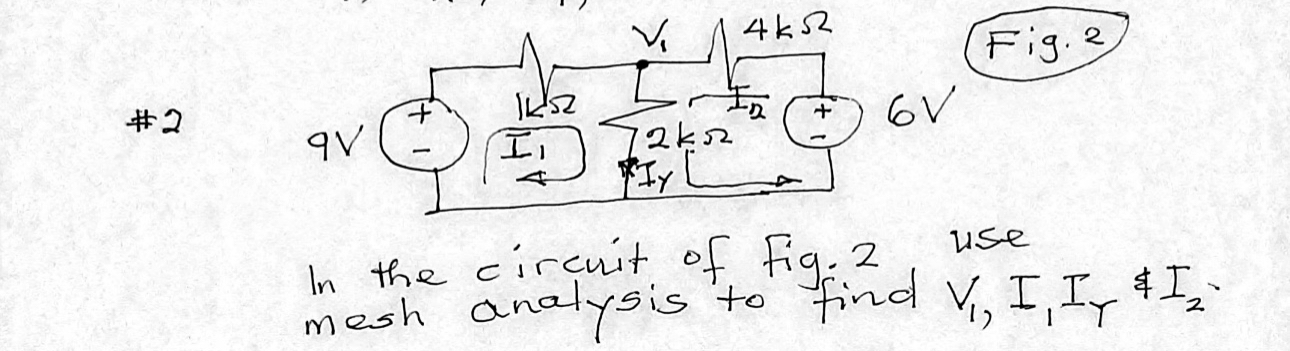 V₁ 4kΩ
Fig. 2
#2
1kΩ
I₂
9V + - I₁ 2kΩ + - 6V
I_Y
In the circuit of Fig. 2 use
mesh analysis to find V₁, I₁ I_Y & I₂.